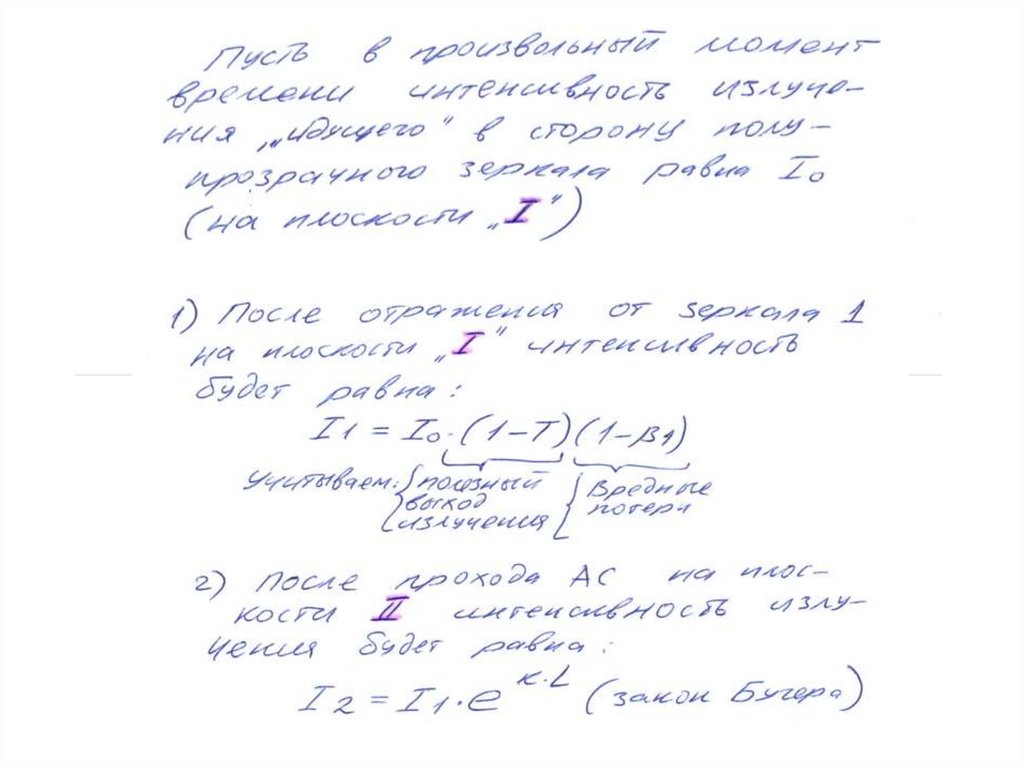 Пусть в произвольный момент
времени интенсивность излуче-
ния „идущего" в сторону полу-
прозрачного зеркала равна I₀
(на плоскости „I")
1) После отражения от зеркала 1
на плоскости „I" интенсивность
будет равна:
I1 = I₀·(1-T)(1-β1)
Учитываем: { полезный { Вредные
выход потери
излучения
2) После прохода АС на плос-
кости II интенсивность излу-
чения будет равна:
I2 = I1·e^(к·L) (закон Бугера)